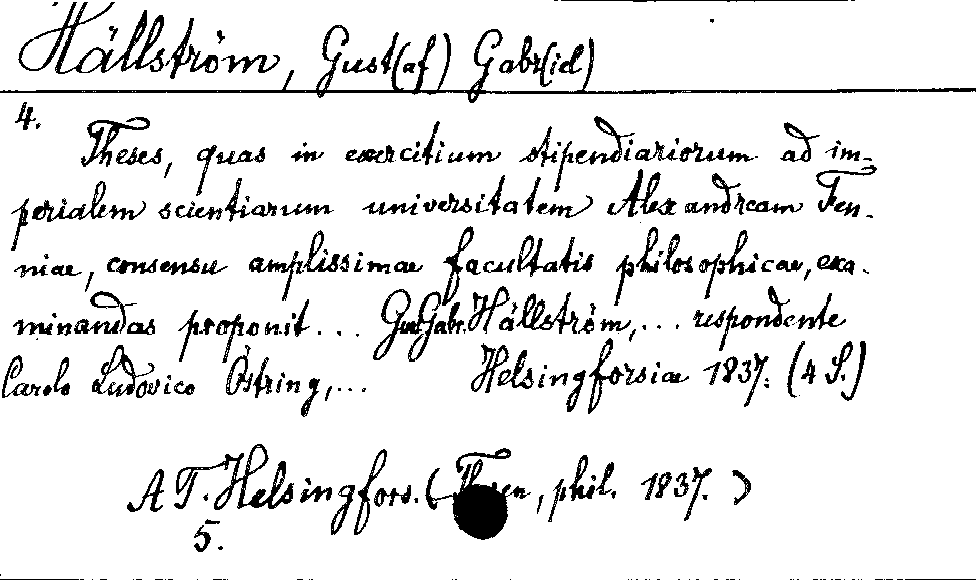 Hällström, Gust(af) Gabr(iel)
4.
Theses, quas in exercitium stipendiariorum ad im-
perialem scientiarum universitatem Alexandream Fen-
niae, consensu amplissimae facultatis philosophicae, exa-
minandas proponit... Gust. Gabr. Hällström,... respondente
Carolo Ludovico Östring,... Helsingforsiae 1837. (4 S.)
A T. Helsingfors. (Thesen, phil. 1837. )
5.